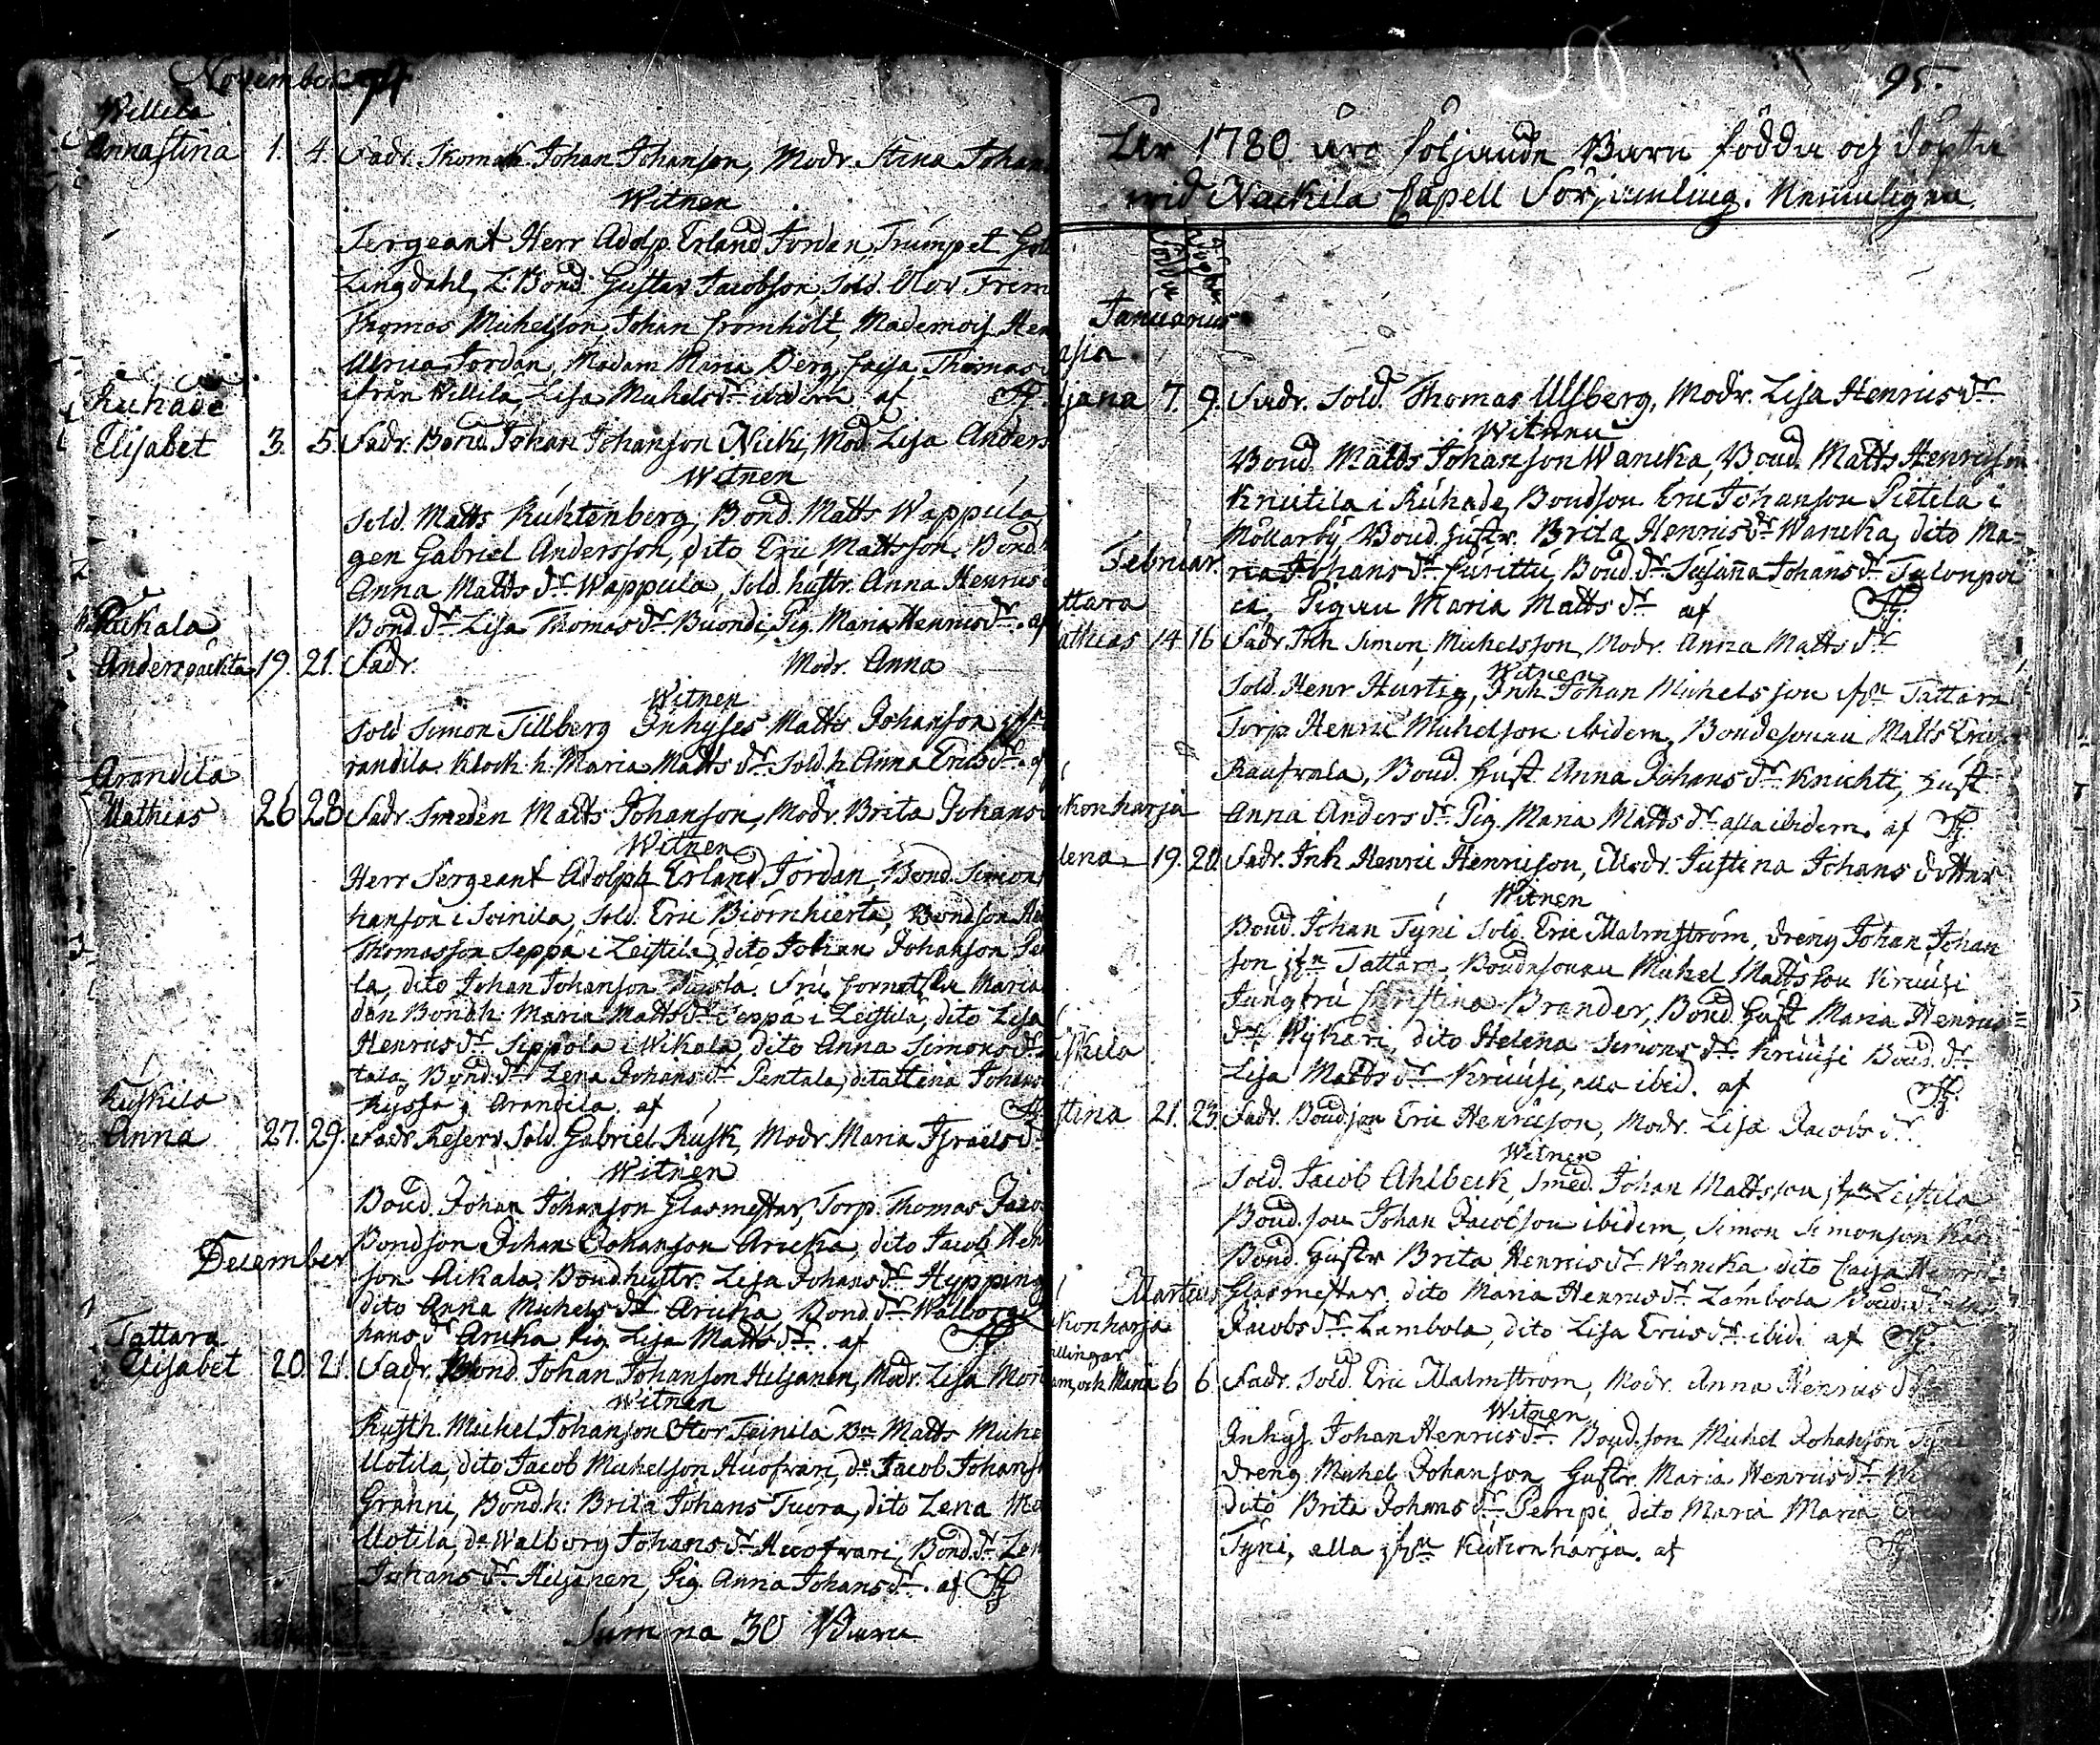 November
Willila
Annastina 1. 4. Fadr. Skomak. Johan Johanson, Modr. Stina Johan
Witnen
Sergeant Herr Adolp. Erland Jordan, Trumpet
Langdahl, L. Bond. Gustav Jacobson, Sold. Olov Frim
Thomas Michelson, Johan Cromholt, Mademois. Hen
Ulrica Jordan, Madam Maria Berg, Caisa Thomas
ifrån Willila, Lisa Michelsdr ibidem af
Ruhade
Elisabet 3. 5. Fadr. Bond. Johan Johanson Nicki, Mod. Lisa Anders
Witnen
Sold. Matts Ruhtenberg, Bond. Matts Wappula
gen Gabriel Andersson, dito Eric Mattsson. Bond.
Anna Mattsdr Wappula, Sold. hustr. Anna Henrics
Bond. dr Lisa Thomasdr Buondi, Pig. Maria Henricsdr. af
Pukala
Anders 19. 21. Fadr. Modr. Anna
Witnen
Sold Simon Tillberg Inhyses Matts Johanson
randila. Klock. h. Maria Mattsdr. Sold. h. Anna Ericsdr. af
Arandila
Mathias 26 28 Fadr. Smeden Matts Johanson, Modr. Brita Johans
Witnen
Herr Sergeant Adolph Erland Jordan, Bond. Simon
hanson i Soinila, Sold. Eric Biörnhierta, Bondson He
Thomasson Seppä i Leistilä, dito Johan Johanson Pe
la, dito Johan Johanson. Fru Maria
dan Bond h. Maria Mattsdr Seppä i Leistilä, dito Lisa
Henricsdr Seppola i Wikala, dito Anna Simonsdr
tala, Bond. dr Lena Johansdr Pentala, Johans
i Arandila. af
Kuskila
Anna 27. 29. Fadr. Reserv Sold. Gabriel Rusk, Modr. Maria Israelsdr
Witnen
Bond. Johan Johanson Glasmestar, Torp. Thomas Jaco
Bondson Johan Johanson Aricka, dito Jacob Hen
December
son Aikala, Bondhustr. Lisa Johansdr Hypping
dito Anna Michelsdr Aricka, Bond. dr Walborg
hansdr Aricka Pig. Lisa Mattsdr. af
Tattara
Elisabet 20. 21. Fadr. Bond. Johan Johanson Hiljanen, Modr. Lisa Mor
Witnen
Rusth. Michel Johanson Stor Teinilä Bn Matts Miche
Uotila, dito Jacob Michelson Huofvari, do Jacob Johans
Granni, Bond. h: Brita Johans Tuora, dito Lena
Uotila, do Walborg Johansdr Huofvari, Bond. dr Len
Johansdr Hiljanen, Pig. Anna Johansdr. af
Summa 30 Barn
95.
År 1780 äro följande Barn födda och döpta
wid Nackila Capell Församling. Nemligen.
Januarius
jana 7. 9. Fadr. Sold. Thomas Ulsberg, Modr. Lisa Henricsdr
Witnen
Bond. Matts Johanson Wancka, Bond. Matts Henricson
Knutila i Ruhade, Bondson Eric Johanson Pietilä i
Mollarby Bond. hustr. Brita Henricsdr Wancka, dito Ma=
Februar.
ria Johansdr Curittu, Bond. dr Susanna Johansdr Talonpoi
ca, Pigan Maria Mattsdr af
ttara
athias 14 16 Fadr. Inh Simon Michelsson, Modr. Anna Mattsdr
Witnen
Sold. Henr Hurtig, Inh. Johan Michelsson ifrn Tattara
Torp. Henric Michelson ibidem, Bondesonen Matts Erics
Raufvala, Bond. Hust. Anna Johansdr Knichti, Hust
konharja
Anna Andersdr. Pig. Maria Mattsdr alla ibidem. af
lena 19. 20. Fadr. Inh Henric Henricson, Modr. Justina Johans dotter
Witnen
Bond. Johan Tyni Sold. Eric Malmström, dreng Johan Johan
son ifrn Tattara, Bondesonen Michel Mattsson Kruusi
Jungfru Christina Brander, Bond. Hust Maria Henrics=
dr Wykari, dito Helena Simonsdr Kruusi Bond. dr
Lisa Mattsdr Kruusi, alla ibid. af
skila
stina 21. 23. Fadr. Bondson Eric Henricson, Modr. Lisa Jacobsdr.
Witnen
Sold. Jacob Ahlbeck, Smed. Johan Mattsson ifrn Leistila
Bond. son Johan Jacobson ibidem, Simon Simonson
Bond. Hustr Brita Henricsdr Wancka dito Caisa Henrics
Martius
Glasmestar, dito Maria Henricsdr Lambola Bond. dr
konharja
Jacobsdr Lambola, dito Lisa Ericsdr ibid. af
llingar
am, och Maria 6 6 Fadr. Sold. Eric Malmström, Modr. Anna Henricsdr
Witnen
Inhys. Johan Henricsdr. Bond. son Michel Johanson Tyni
dreng Michel Johanson, Hustr. Maria Henricsdr
dito Brita Johansdr Pempi, dito Maria Maria
Tyni, alla ifrn Kukonharja. af